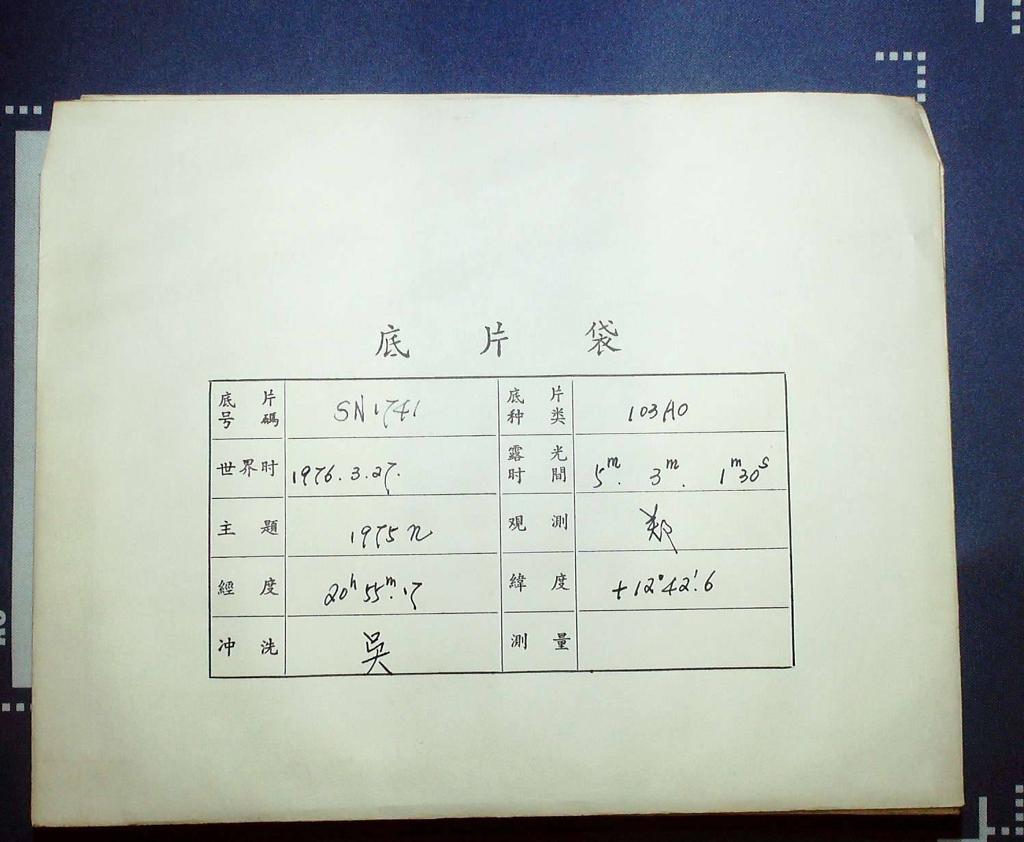 底 片 袋
底 片 号 碼 SN1741 底 片 种 类 103AO
世界时 1976.3.27. 露 光 时 間 5ᵐ. 3ᵐ. 1ᵐ30ˢ
主 題 1975n 观 測 郑
經 度 20ʰ55ᵐ.17 緯 度 +12°42'.6
冲 洗 吳 測 量